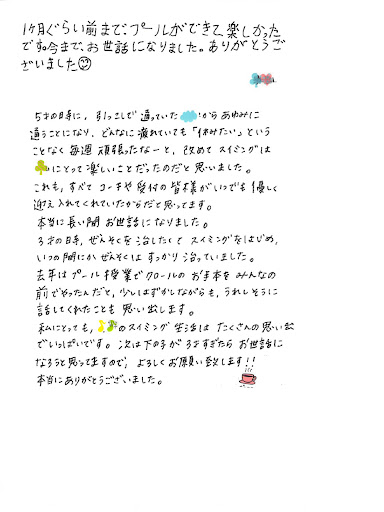 1ヶ月ぐらい前まで、プールができて楽しかった
です。今まで、お世話になりました。ありがとうご
ざいました
5才の時に、引っこしで通っていた から あゆみに
通うことになり、どんなに疲れていても「休みたい」という
ことなく毎週頑張ったなーと、改めてスイミングは
にとって楽しいことだったのだと思いました。
これも、すべてコーチや受付の皆様がいつでも優しく
迎え入れてくれていたからだと思ってます。
本当に長い間お世話になりました。
3才の時、ぜんそくを治したくてスイミングをはじめ、
いつの間にかぜんそくはすっかり治っていました。
去年はプール授業でクロールのお手本をみんなの
前でやったんだと、少しはずかしながらも、うれしそうに
話してくれたことも思い出します。
私にとっても、 のスイミング生活はたくさんの思い出
でいっぱいです。次は下の子が3才すぎたらお世話に
なろうと思ってますので、よろしくお願い致します!!
本当にありがとうございました。